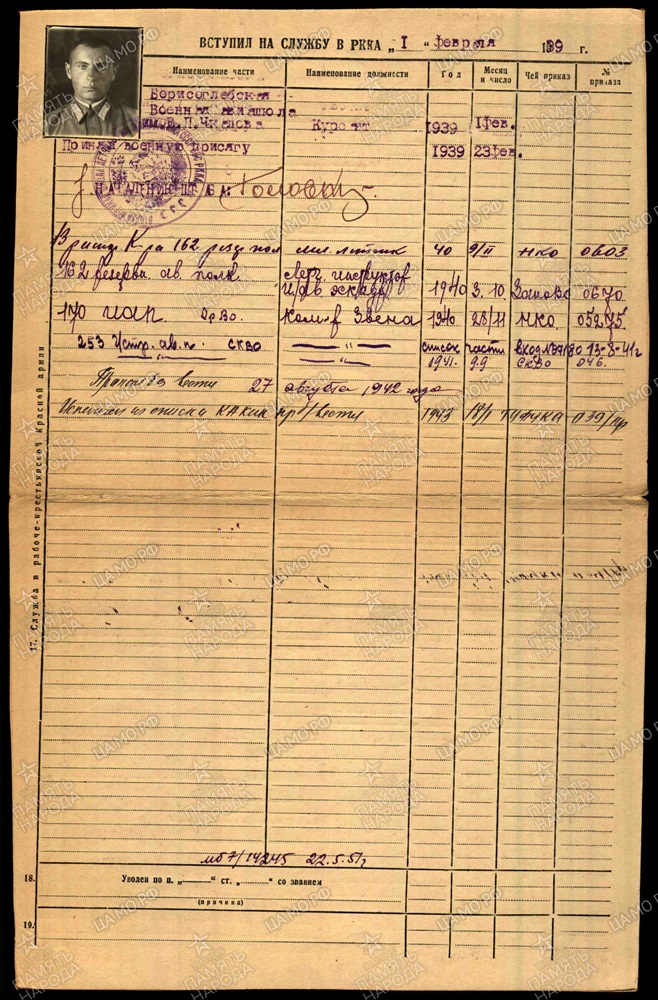 ВСТУПИЛ НА СЛУЖБУ В РККА „ I “ февраля 1939 г.
Наименование части Наименование должности Год Месяц и число Чей приказ № приказа
Борисоглебская
Военная авиашкола
им. В.П. Чкалова Курсант 1939 1 фев.
Принял военную присягу 1939 23 фев.
НАЧАЛЬНИК ШТАБА:
В расп. К-ра 162 резерв. пол мл. летчик 40 9/II НКО 0603
162 резервн. ав. полк. Лет. инструктор
1940 3.10. ЗапОВО 0670
170 иап. ОрВО. Ком-р Звена 1940 28/11 НКО. 05275
253 Истр. ав. п. СКВО список части вход.
13-8-41г
1941. 9.9 СКВО 046.
Пропал без вести 27 августа 1942 года
Исключен из списка КА как пр. б/вести 1943 ГУФУКА 039/пр
17. Служба в рабоче-крестьянской Красной армии
мб7/14245 22.5.51г
18. Уволен по п. „ “ ст. „ “ со званием
(причина)
19.
ПАМЯТЬ НАРОДА
ЦАМО.РФ